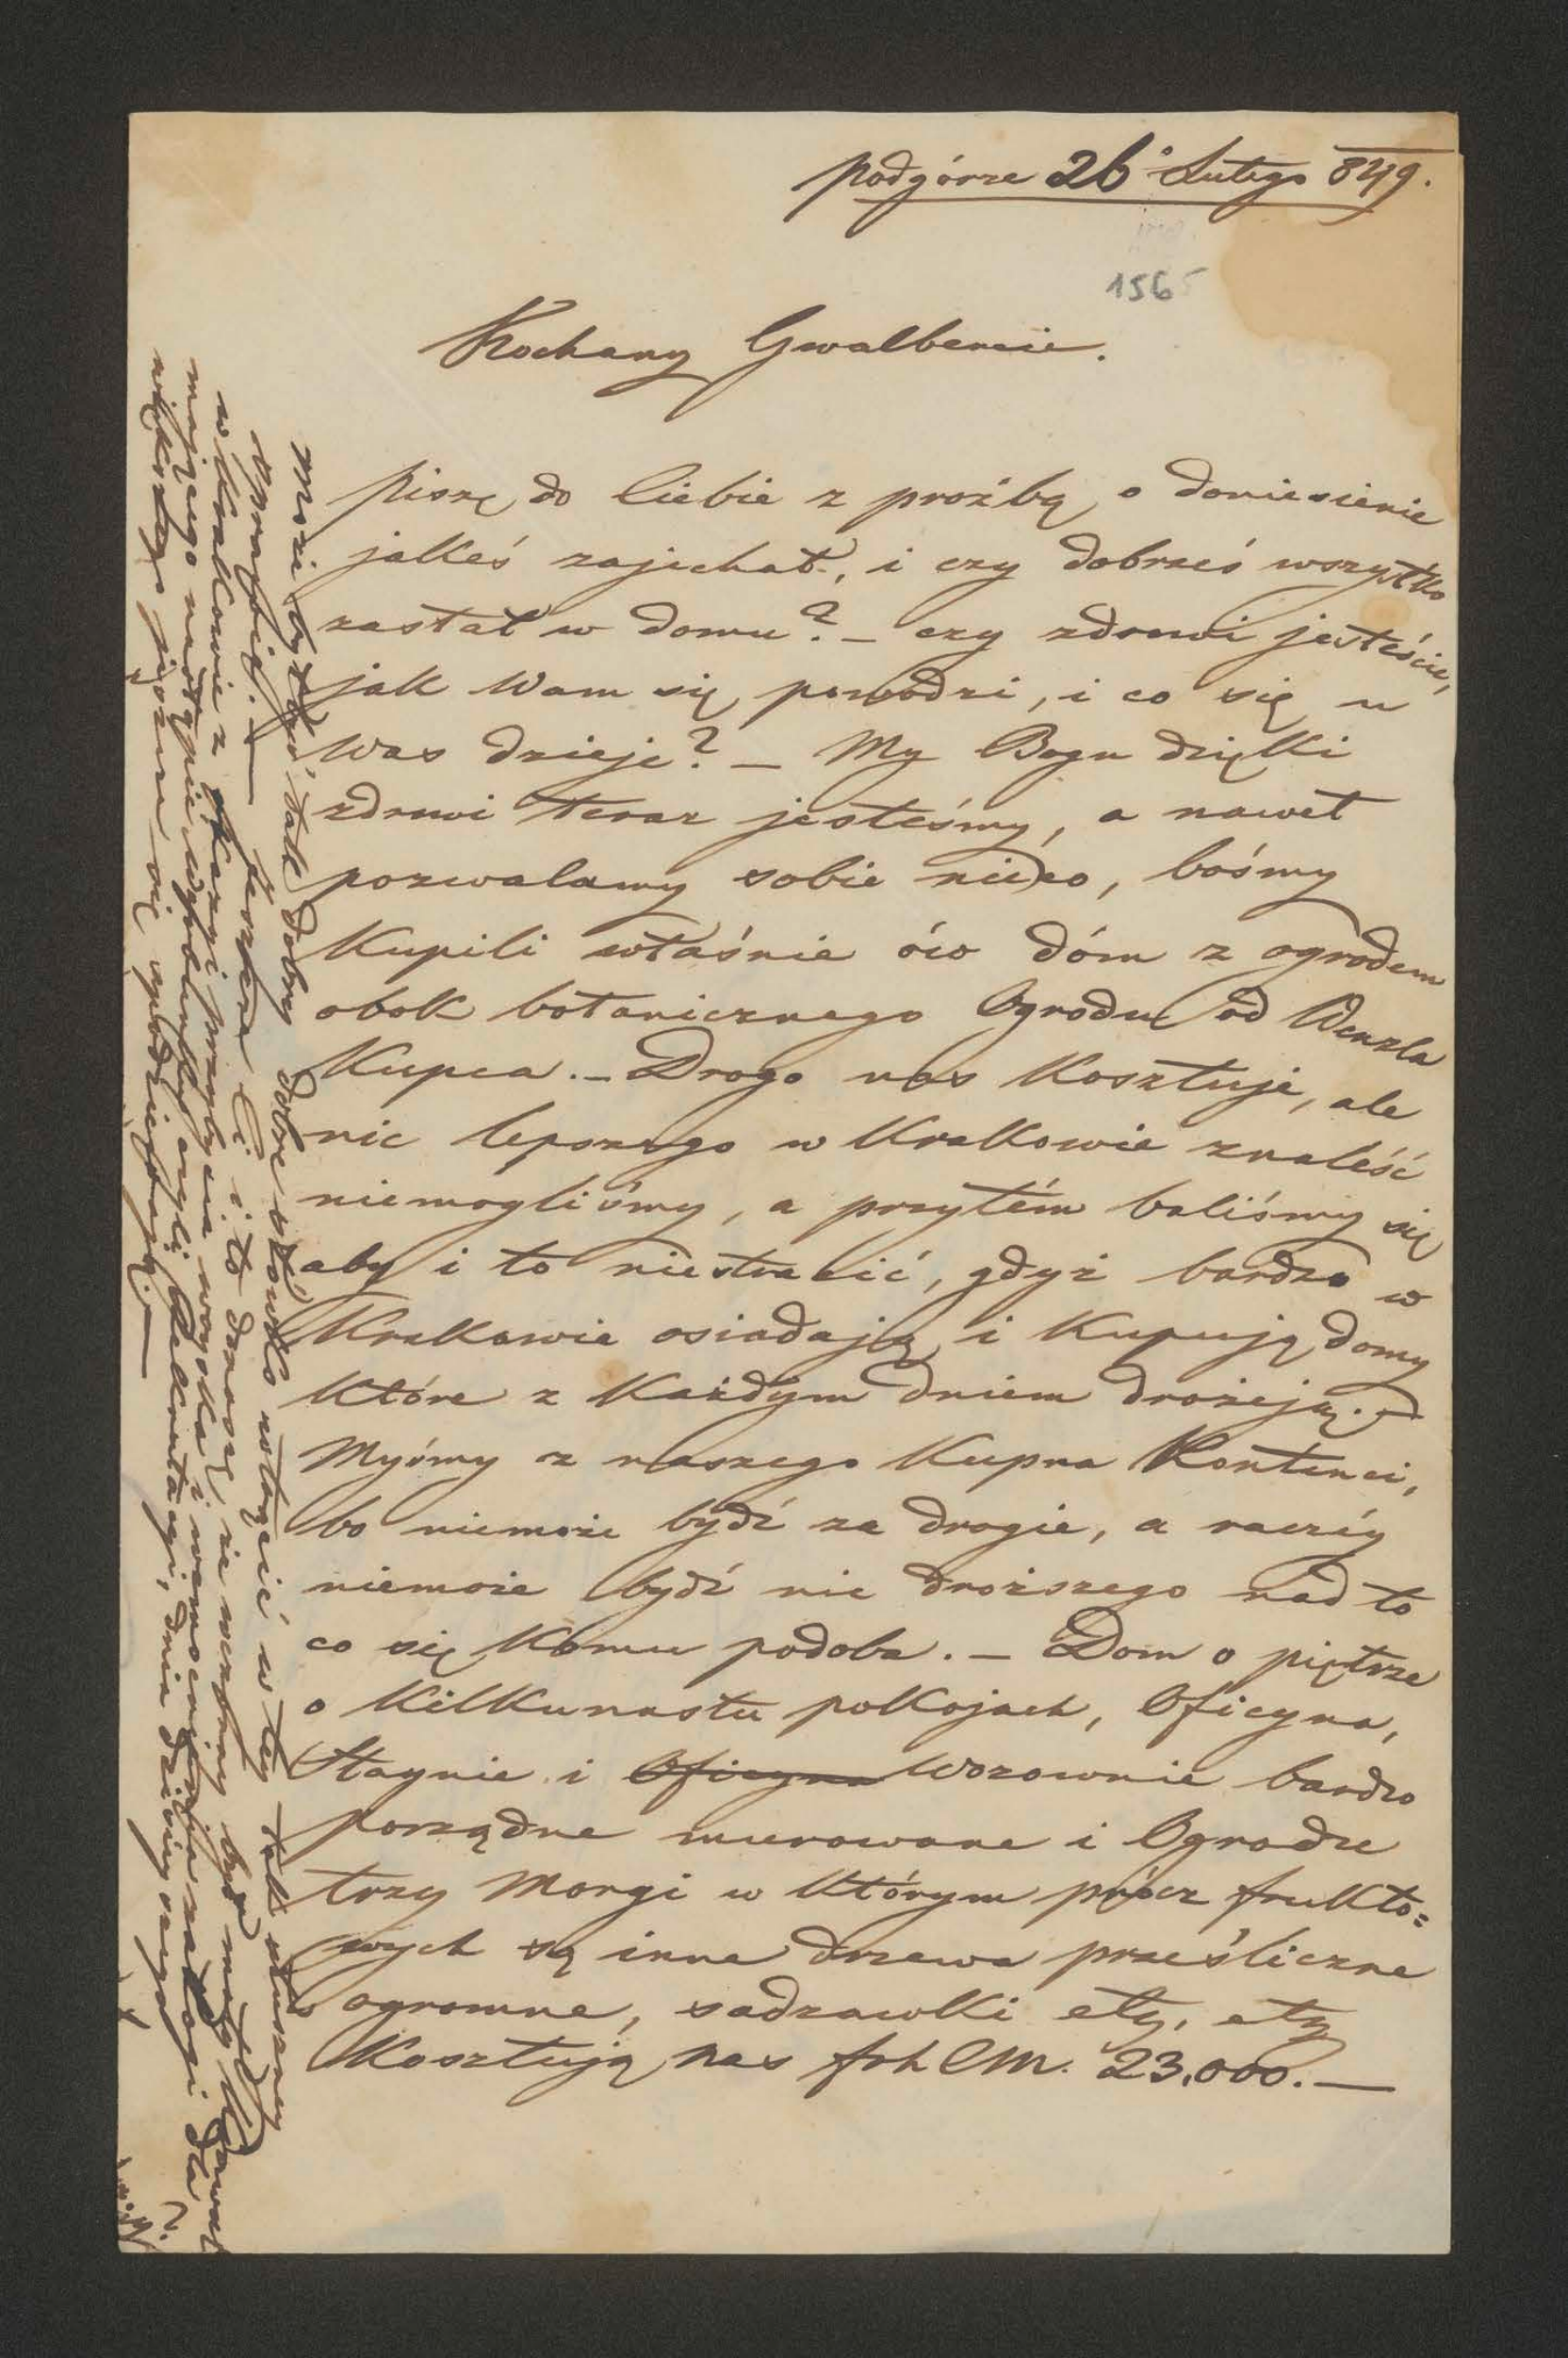 podgórze 26° Lutego 849.
1565
Kochany Gwalbercie.
piszę do Ciebie z proźbą o doniesienie
jakeś zajechał, i czy dobrześ wszystko
zastał w domu? – czy zdrowi jesteście,
jak Wam się powodzi, i co się u
Was dzieje? – My Bogu dzięki
zdrowi teraz jesteśmy, a nawet
pozwalamy sobie nieco, bośmy
Kupili właśnie ów dóm z ogrodem
obok botanicznego Ogrodu od Wenzla
Kupca. – Drogo nas Kosztuje, ale
nic lepszego w Krakowie znaleść
niemogliśmy, a przytém baliśmy się
aby i to niestracić, gdyż bardzo w
Krakowie osiadają i Kupują domy
Które z Każdym dniem drożeją. –
Myśmy z naszego Kupna Kontenci,
bo niemoże bydź za drogie, a raczéy
niemoże bydź nic droższego nad to
co się Komu podoba. – Dom o piętrze
o Kilkunastu pokojach, Oficyna,
Staynie i Oficyna Wozownie bardzo
porządne murowane i Ogrodu
trzy Morgi w Którym prócz frukto=
wych są inne drzewa prześliczne
ogromne, sadzawki etz, etz
Kosztują nas frh CM. 23,000. –
Może bydź tak dobry dobre słówko wtrącić w téy tak słuszney
sprawie. – Koszta Ci i to donoszę, że
w Krakowie z okazyi przybycia woyska i
mającego nastąpić czyli Rekrutacyi, dnia